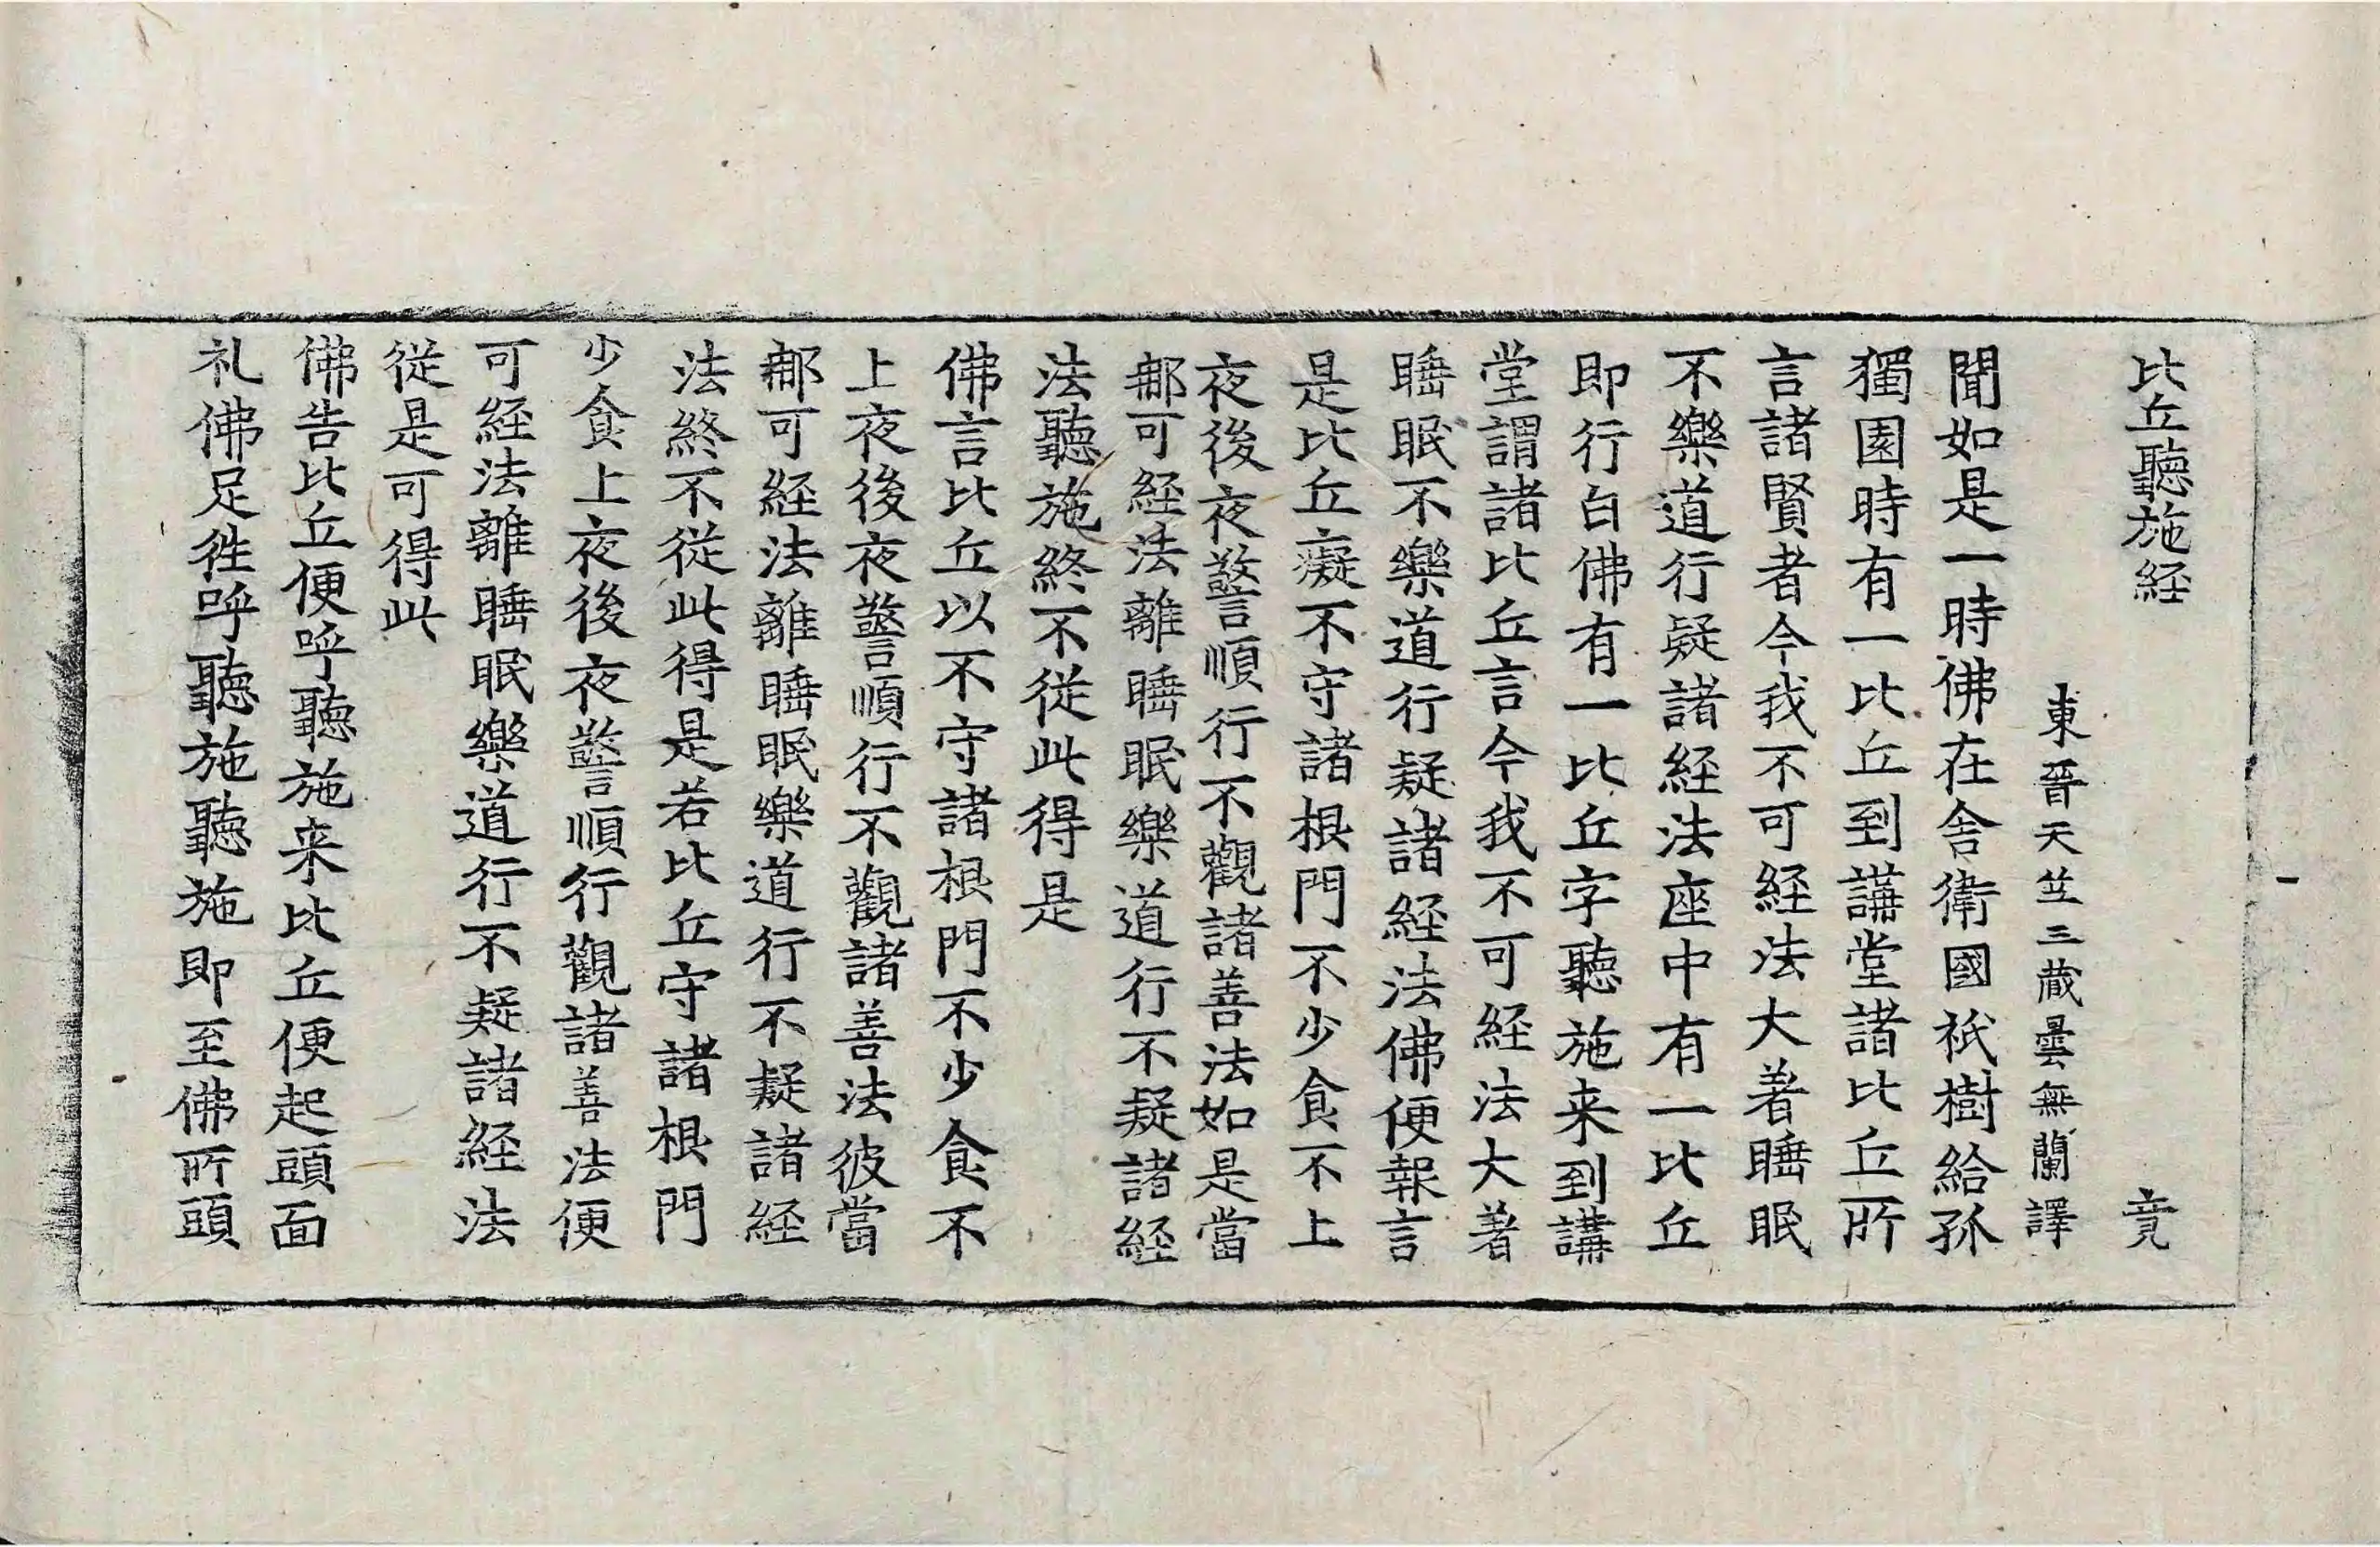 比丘聽施経 竟
東晉天竺三蔵曇無蘭譯
聞如是一時佛在舎衛國祇樹給孤
獨園時有一比丘到講堂諸比丘所
言諸賢者今我不可経法大著睡眠
不樂道行疑諸経法座中有一比丘
即行白佛有一比丘字聽施来到講
堂謂諸比丘言今我不可経法大著
睡眠不樂道行疑諸経法佛便報言
是比丘癡不守諸根門不少食不上
夜後夜警順行不觀諸善法如是當
那可経法離睡眠樂道行不疑諸経
法聽施終不従此得是
佛言比丘以不守諸根門不少食不
上夜後夜警順行不觀諸善法彼當
那可経法離睡眠樂道行不疑諸経
法終不従此得是若比丘守諸根門
少食上夜後夜警順行觀諸善法便
可経法離睡眠樂道行不疑諸経法
従是可得此
佛告比丘便呼聽施来比丘便起頭面
礼佛足徃呼聽施聽施即至佛所頭